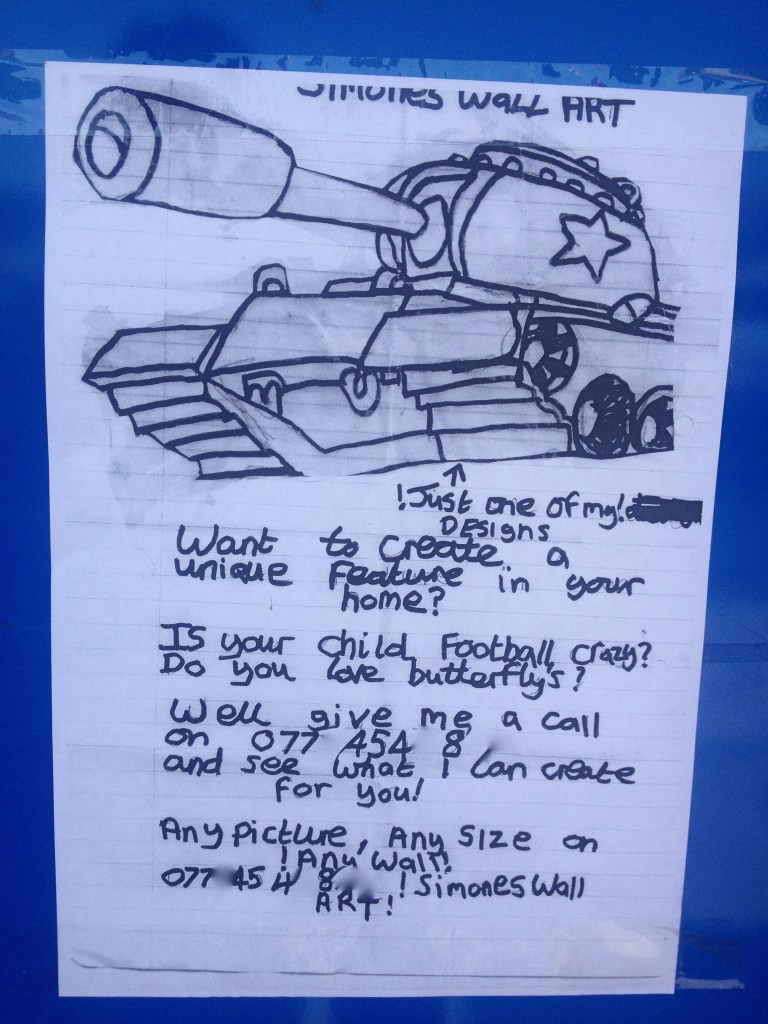 SIMONES WALL ART
!Just one of my!
DESIGNS
Want to create a
unique feature in your
home?
IS your child Football crazy?
Do you love butterfly's?
Well give me a call
on 077 454 8
and see what I can create
for you!
Any picture, Any size on
! Any Wall!
077 454 8 ! Simones Wall
ART!